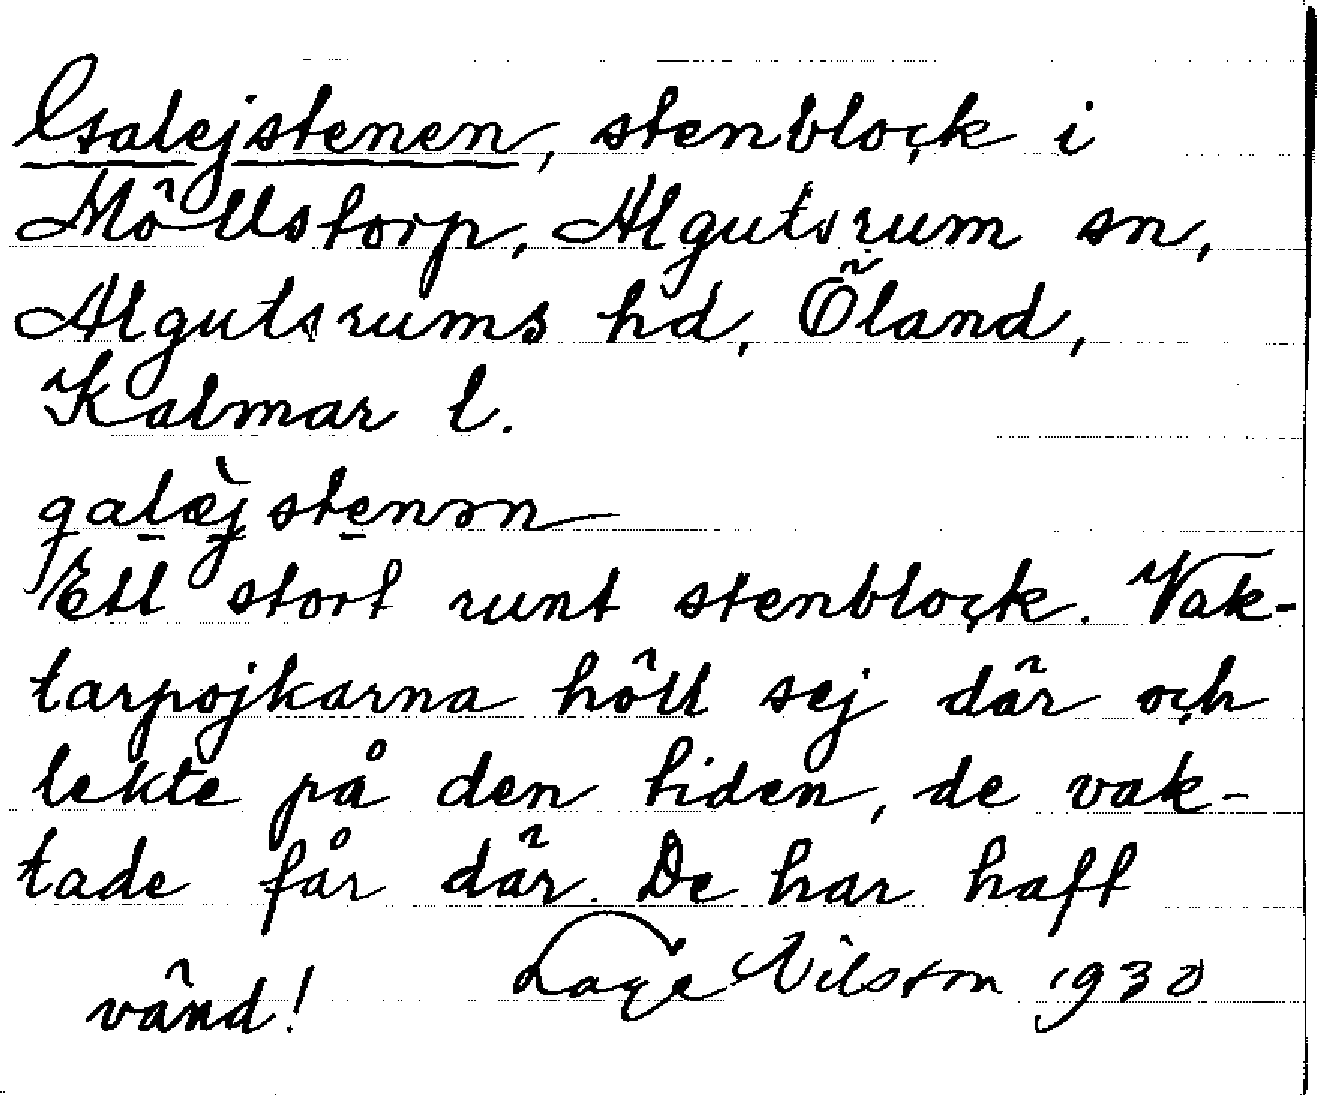 Galejstenen, stenblock i
Möllstorp, Algutsrum sn,
Algutsrums hd, Öland,
Kalmar l.
galæ̀jstenən
Ett stort runt stenblock. Vak-
tarpojkarna höll sej där och
lekte på den tiden, de vak-
tade får där. De har haft
vänd! Lage Nilsson 1930